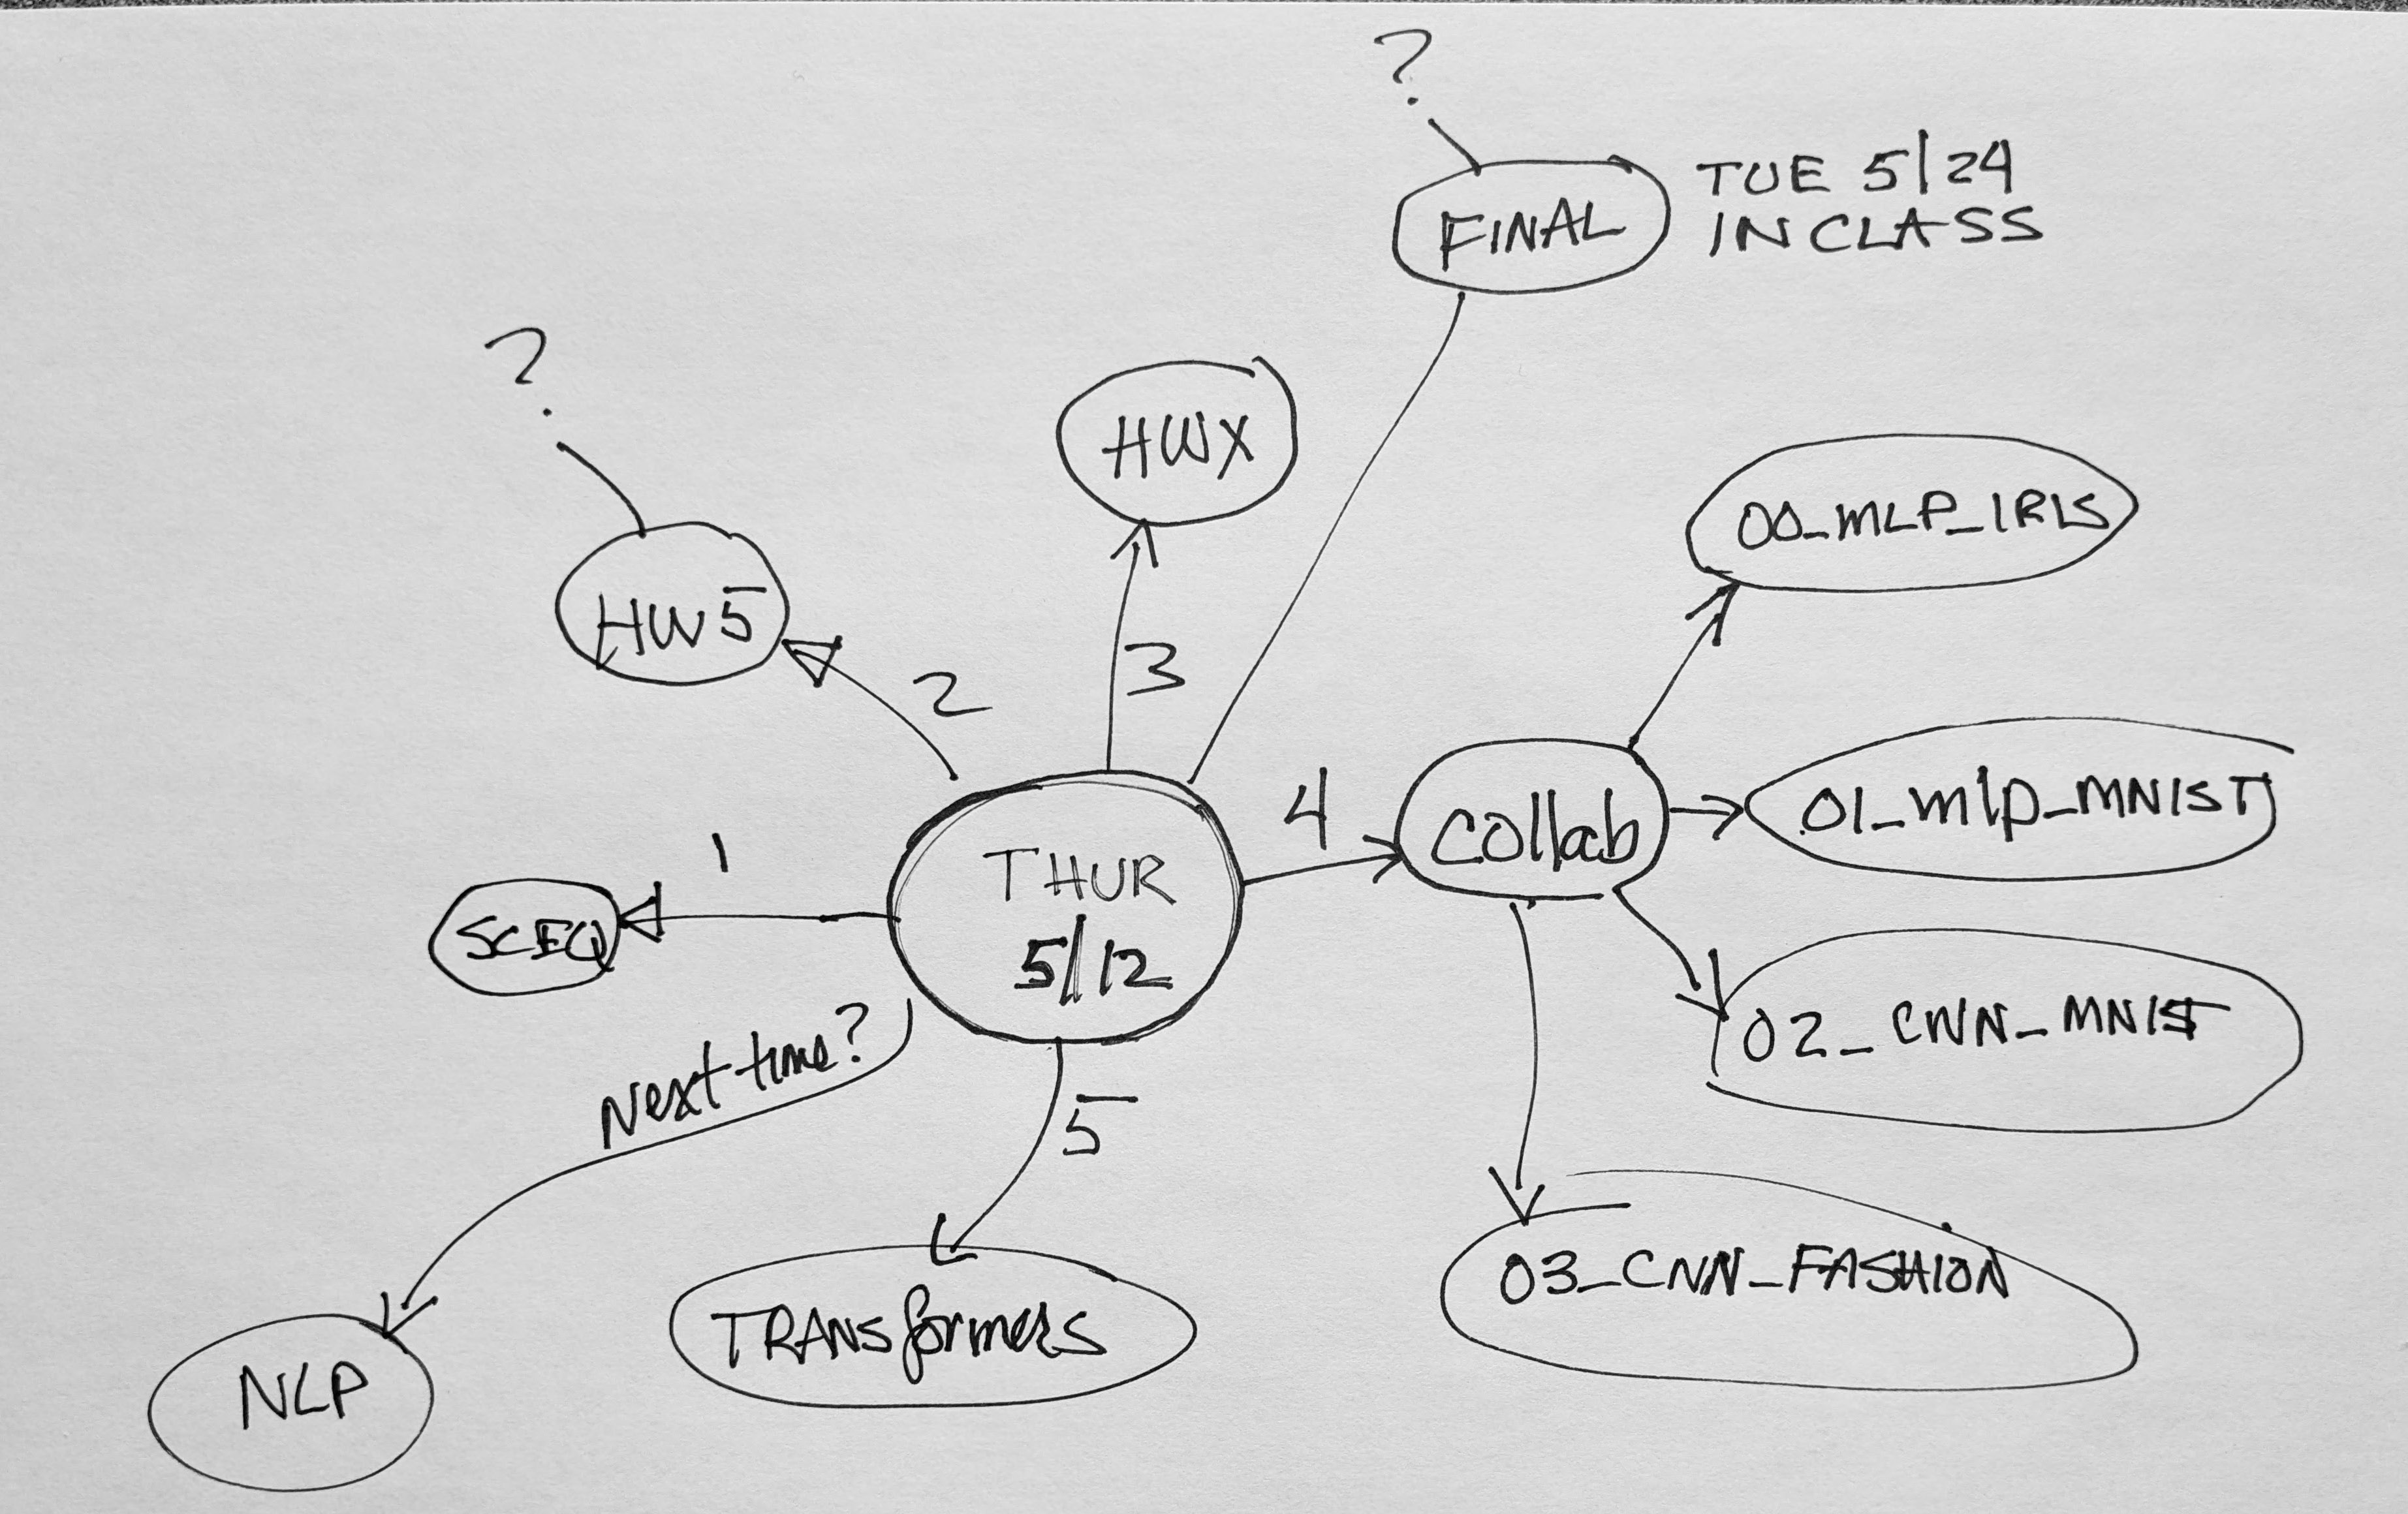 ?
FINAL
TUE 5/24
IN CLASS
?
HWX
HW5
00_MLP_IRIS
2
3
4
collab
01_mlp_MNIST
1
SCEQ
THUR
5/12
02_CNN_MNIST
Next time?
5
03_CNN_FASHION
TRANSformers
NLP